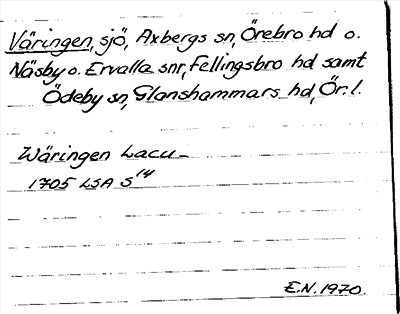 Väringen, sjö, Axbergs sn, Örebro hd o.
Näsby o. Ervalla snr, Fellingsbro hd samt
Ödeby sn, Glanshammars hd, Ör. l.
Wäringen Lacu –
1705 LSA S 14
E.N. 1970.